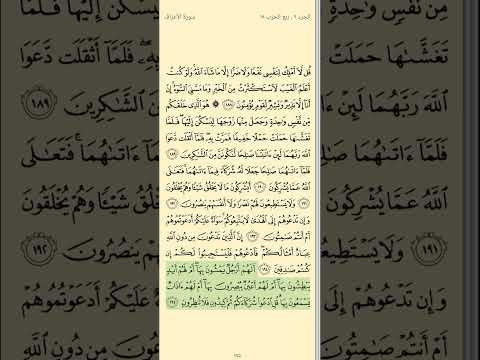 الجزء ٩ ، ربع الحزب ١٨
سورة الأعراف
قُل لَّآ أَمْلِكُ لِنَفْسِى نَفْعًا وَلَا ضَرًّا إِلَّا مَا شَآءَ ٱللَّهُ وَلَوْ كُنتُ
أَعْلَمُ ٱلْغَيْبَ لَٱسْتَكْثَرْتُ مِنَ ٱلْخَيْرِ وَمَا مَسَّنِىَ ٱلسُّوٓءُ إِنْ
أَنَا۠ إِلَّا نَذِيرٌ وَبَشِيرٌ لِّقَوْمٍ يُؤْمِنُونَ ١٨٨ ۞ هُوَ ٱلَّذِى خَلَقَكُم
مِّن نَّفْسٍ وَٰحِدَةٍ وَجَعَلَ مِنْهَا زَوْجَهَا لِيَسْكُنَ إِلَيْهَا فَلَمَّا
تَغَشَّىٰهَا حَمَلَتْ حَمْلًا خَفِيفًا فَمَرَّتْ بِهِۦ فَلَمَّآ أَثْقَلَت دَّعَوَا
ٱللَّهَ رَبَّهُمَا لَئِنْ ءَاتَيْتَنَا صَٰلِحًا لَّنَكُونَنَّ مِنَ ٱلشَّٰكِرِينَ ١٨٩
فَلَمَّآ ءَاتَىٰهُمَا صَٰلِحًا جَعَلَا لَهُۥ شُرَكَآءَ فِيمَآ ءَاتَىٰهُمَا فَتَعَٰلَى
ٱللَّهُ عَمَّا يُشْرِكُونَ ١٩٠ أَيُشْرِكُونَ مَا لَا يَخْلُقُ شَيْـًٔا وَهُمْ يُخْلَقُونَ
١٩١ وَلَا يَسْتَطِيعُونَ لَهُمْ نَصْرًا وَلَآ أَنفُسَهُمْ يَنصُرُونَ ١٩٢
وَإِن تَدْعُوهُمْ إِلَى ٱلْهُدَىٰ لَا يَتَّبِعُوكُمْ سَوَآءٌ عَلَيْكُمْ أَدَعَوْتُمُوهُمْ
أَمْ أَنتُمْ صَٰمِتُونَ ١٩٣ إِنَّ ٱلَّذِينَ تَدْعُونَ مِن دُونِ ٱللَّهِ
عِبَادٌ أَمْثَالُكُمْ فَٱدْعُوهُمْ فَلْيَسْتَجِيبُوا۟ لَكُمْ إِن
كُنتُمْ صَٰدِقِينَ ١٩٤ أَلَهُمْ أَرْجُلٌ يَمْشُونَ بِهَآ أَمْ لَهُمْ أَيْدٍ
يَبْطِشُونَ بِهَآ أَمْ لَهُمْ أَعْيُنٌ يُبْصِرُونَ بِهَآ أَمْ لَهُمْ ءَاذَانٌ
يَسْمَعُونَ بِهَا قُلِ ٱدْعُوا۟ شُرَكَآءَكُمْ ثُمَّ كِيدُونِ فَلَا تُنظِرُونِ ١٩٥
١٧٥